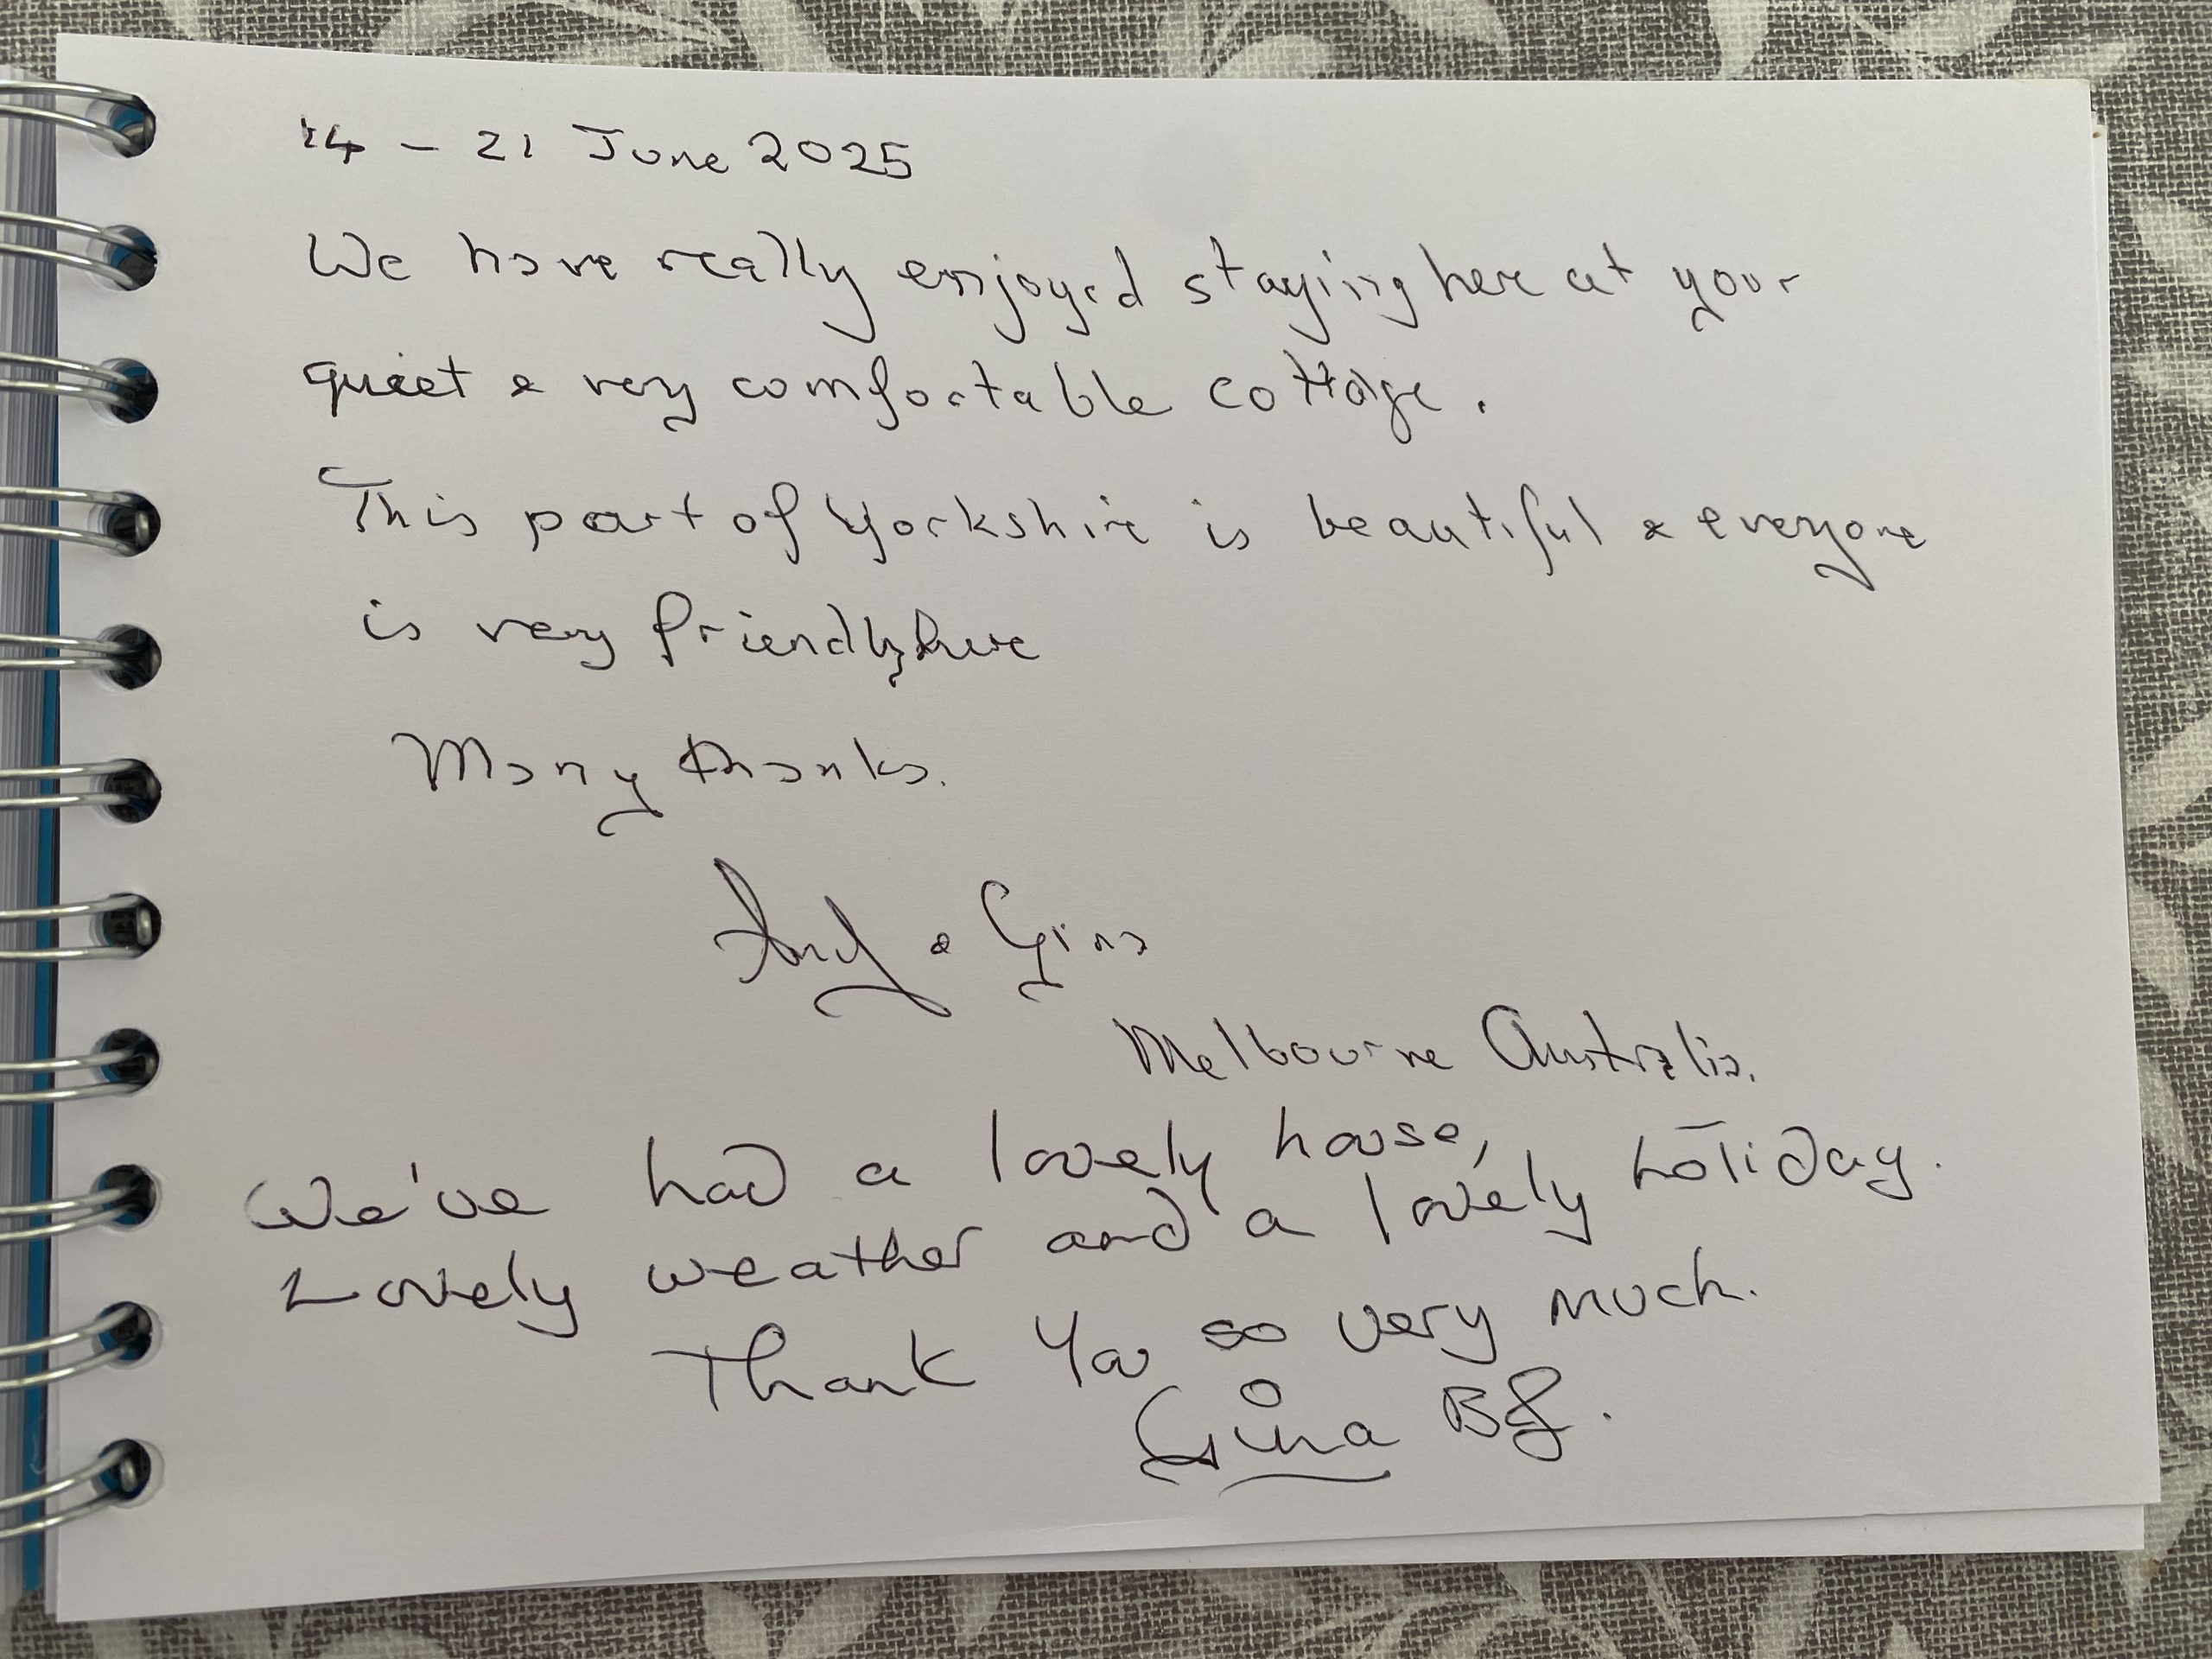 14 - 21 June 2025
We have really enjoyed staying here at your
quiet & very comfortable cottage.
This part of Yorkshire is beautiful & everyone
is very friendly here
Many thanks.
Andy & Gina
Melbourne Australia.
We've had a lovely house,
Lovely weather and a lovely holiday.
Thank You so very much.
Gina B